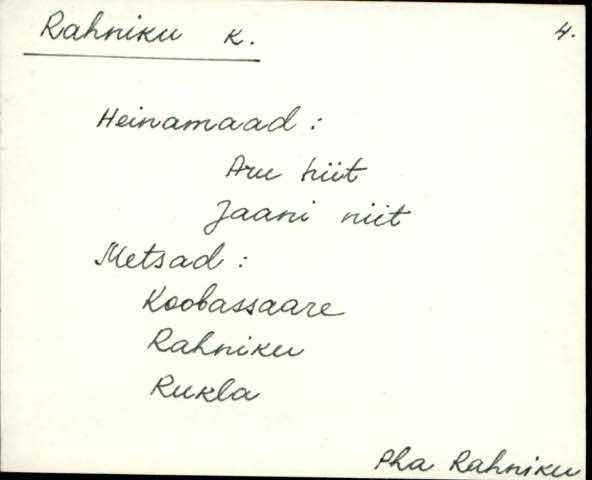 Rahniku k. 4.
Heinamaad:
Aru niit
Jaani niit
Metsad:
Koobassaare
Rahniku
Rukla
Pha Rahniku